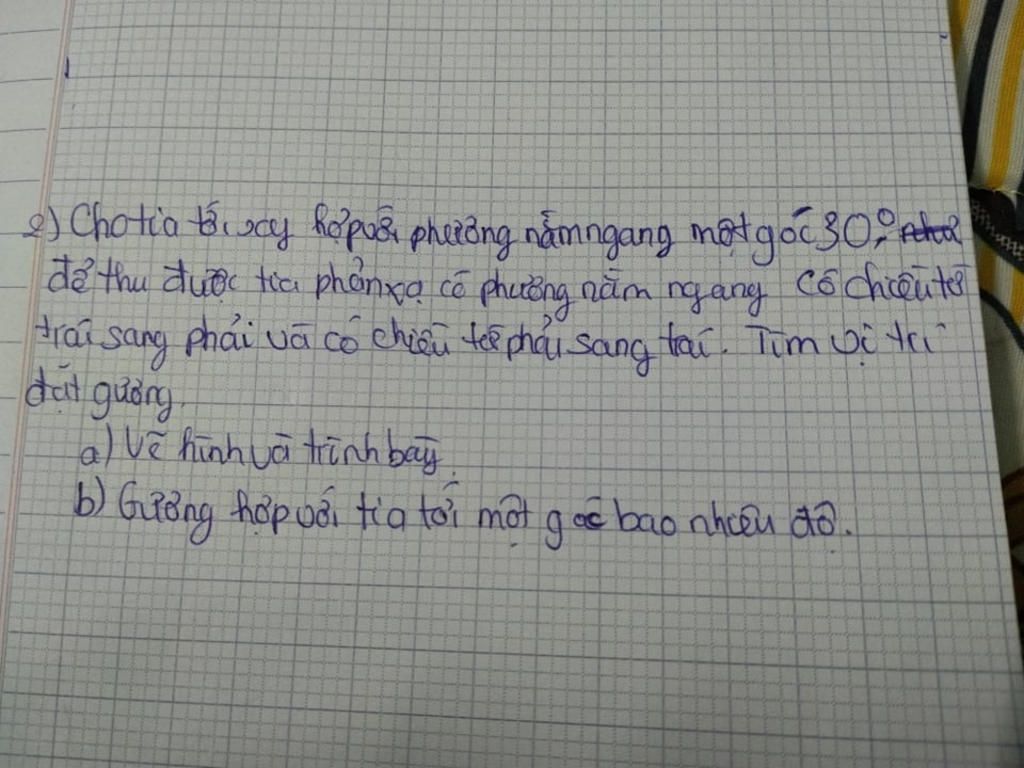 2) Cho tia tới xy hợp với phương nằm ngang một góc 30°,
để thu được tia phản xạ có phương nằm ngang có chiều từ
trái sang phải và có chiều từ phải sang trái. Tìm vị trí
đặt gương.
a) Vẽ hình và trình bày.
b) Gương hợp với tia tới một góc bao nhiêu độ.